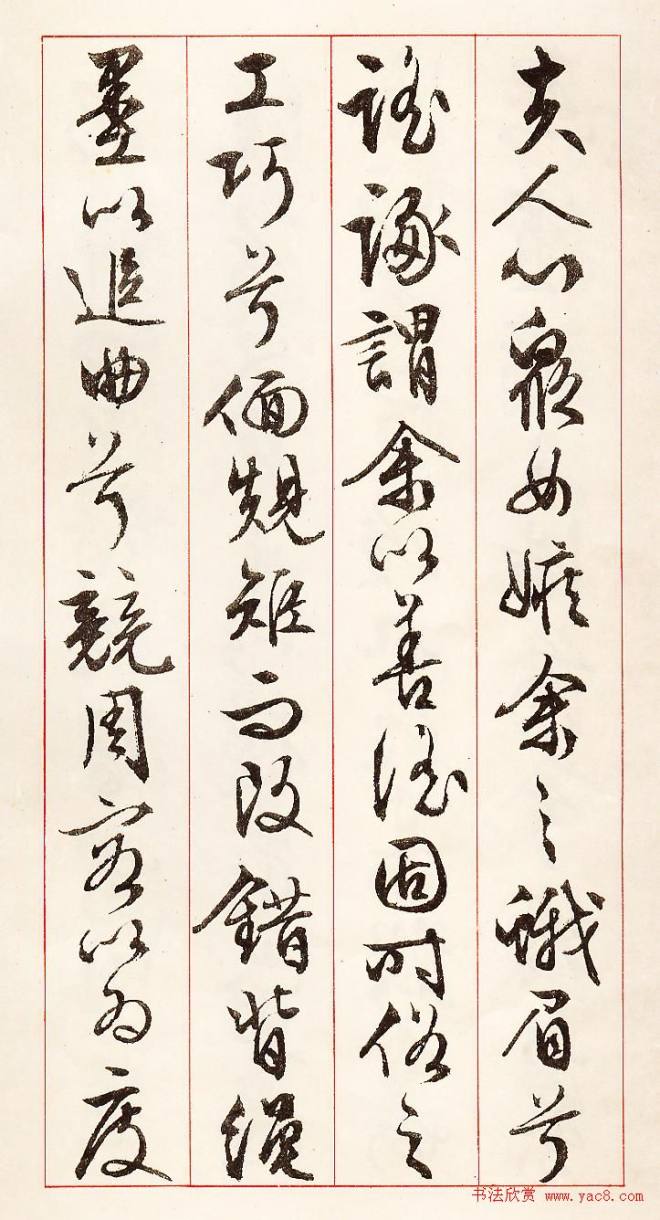 夫人心众女嫉余之蛾眉兮
谣諑謂余以善淫固时俗之
工巧兮偭規矩而改錯背绳
墨以追曲兮競周容以为度
书法欣赏 www.yac8.com